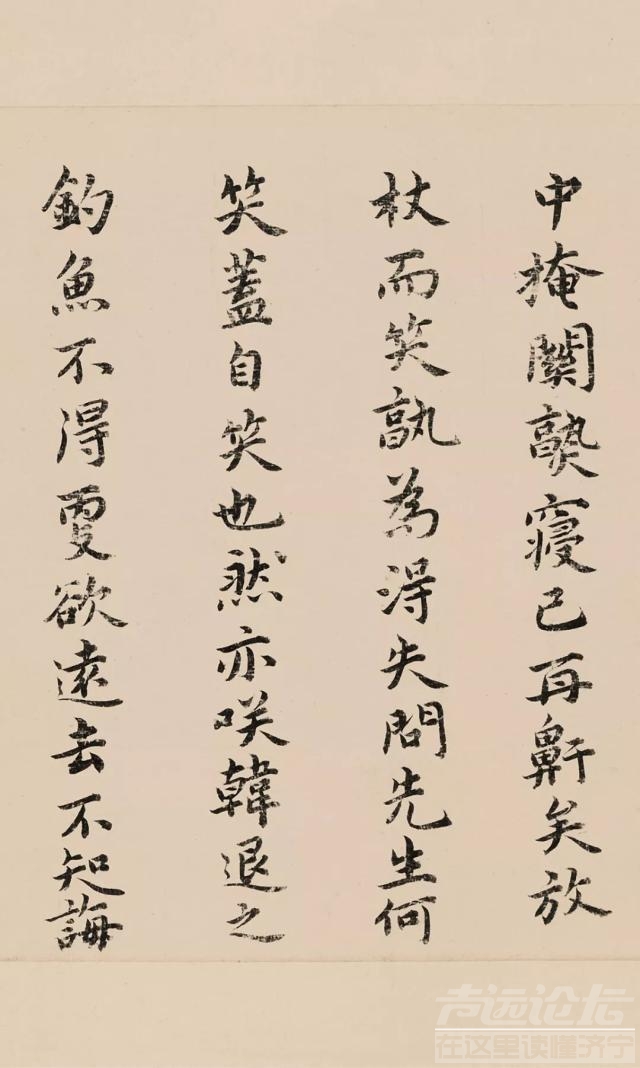 中掩關熟寢已再鼾矣放
杖而笑孰為得失問先生何
笑蓋自笑也然亦咲韓退之
釣魚不得更欲遠去不知誨
声远论坛
在这里读懂济宁